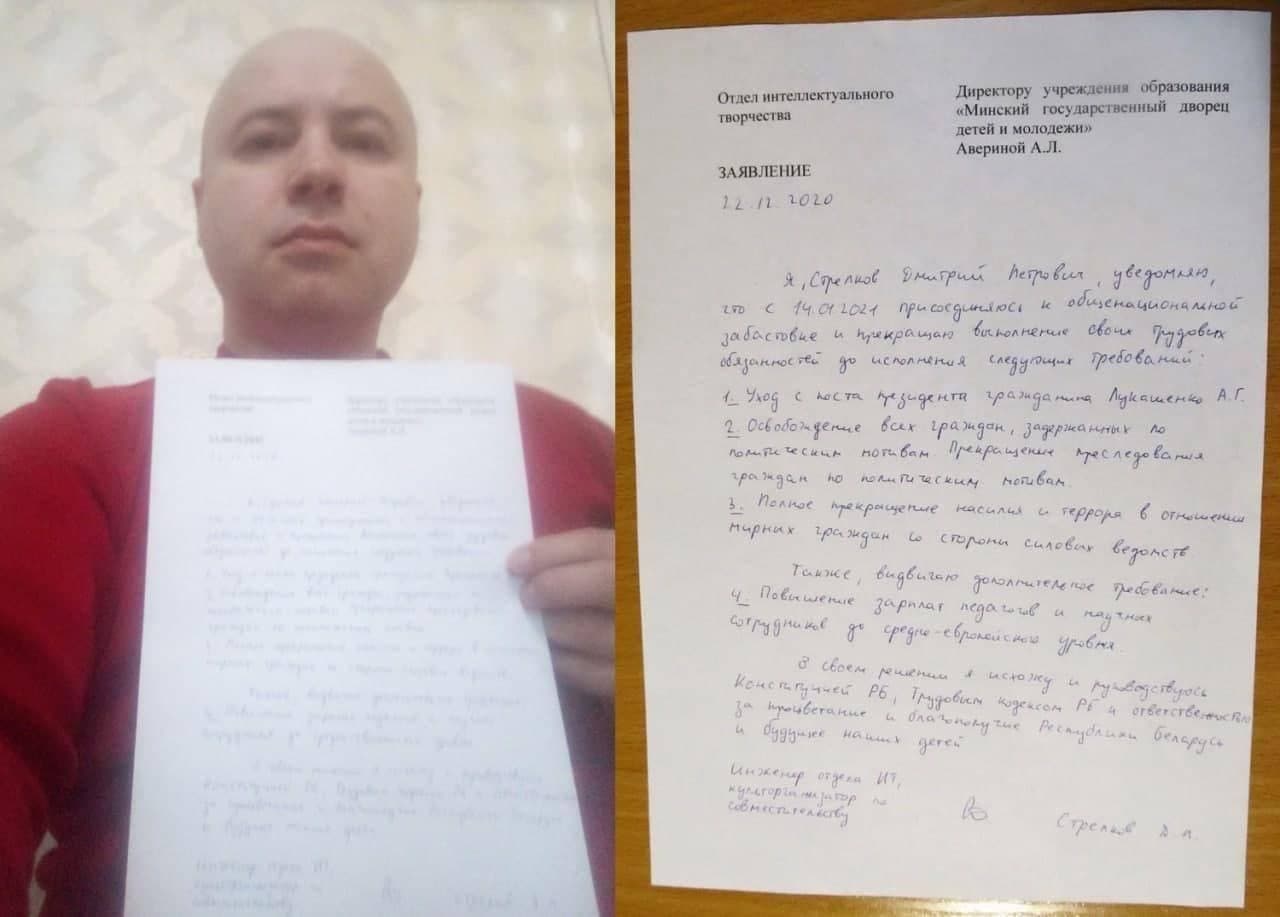 Отдел интеллектуального
творчества
Директору учреждения образования
«Минский государственный дворец
детей и молодежи»
Авериной А.Л.
ЗАЯВЛЕНИЕ
22.12.2020
Я, Стрелков Дмитрий Петрович, уведомляю,
что с 14.01.2021 присоединяюсь к общенациональной
забастовке и прекращаю выполнение своих трудовых
обязанностей до исполнения следующих требований:
1. Уход с поста президента гражданина Лукашенко А.Г.
2. Освобождение всех граждан, задержанных по
политическим мотивам. Прекращение преследования
граждан по политическим мотивам.
3. Полное прекращение насилия и террора в отношении
мирных граждан со стороны силовых ведомств
Также, выдвигаю дополнительное требование:
4. Повышение зарплат педагогов и научных
сотрудников до средне-европейского уровня.
В своем решении я исхожу и руководствуюсь
Конституцией РБ, Трудовым кодексом РБ и ответственностью
за процветание и благополучие Республики Беларусь
и будущее наших детей
Инженер отдела ИТ,
культорганизатор по
совместительству
Стрелков Д.П.